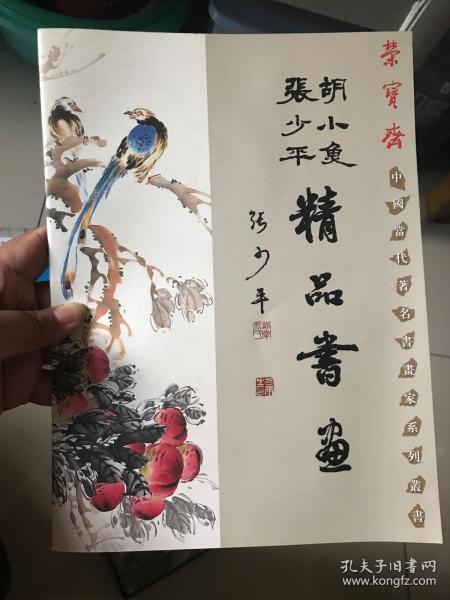 榮寶齋
中國當代著名書畫家系列叢書
胡小魚
張少平
精品書畫
張少平
孔夫子旧书网
www.kongfz.com